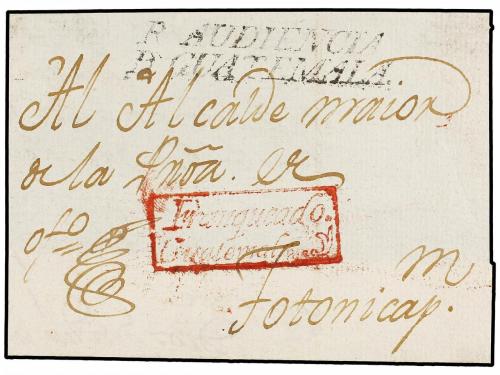 R. AUDIENCIA
D. GUATEMALA.
Al Alcalde maior
de la Prõa. de
Franqueado.
Guatemala
m
Totonicap.